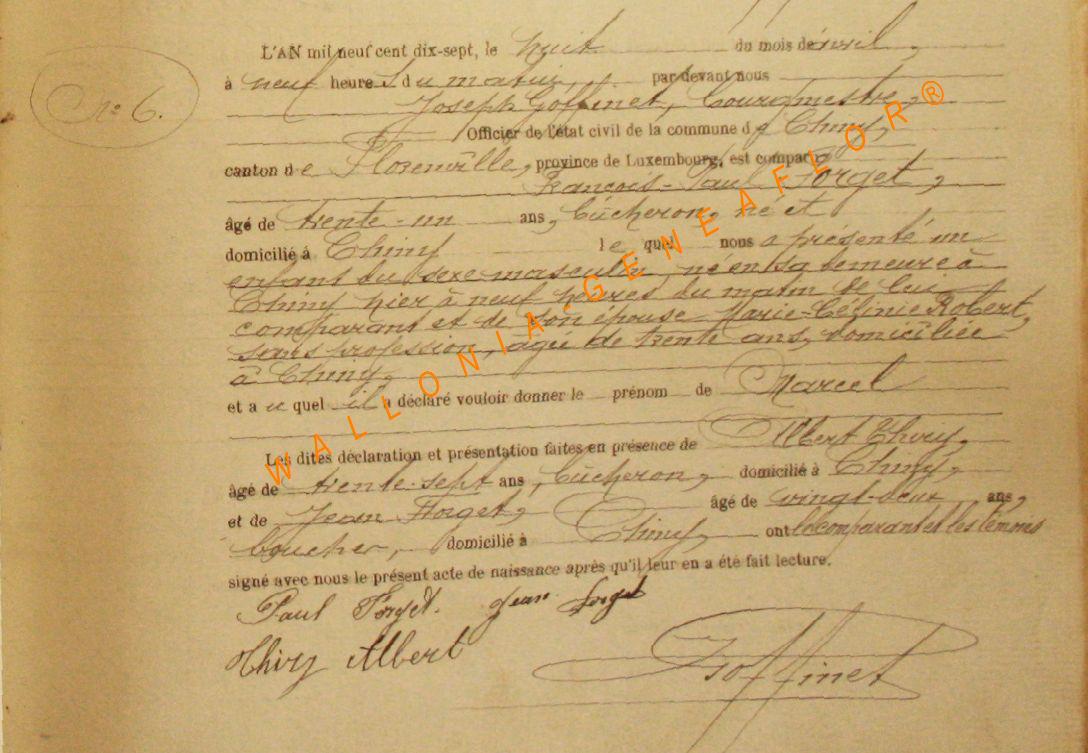 L'AN mil neuf cent dix-sept, le huit du mois de avril,
N° 6.
à neuf heures du matin, par devant nous
Joseph Goffinet, Bourgmestre,
Officier de l'état civil de la commune de Chiny,
canton de Florenville, province de Luxembourg, est comparu
François-Paul Forget,
âgé de trente-un ans, bûcheron, né et
domicilié à Chiny lequel nous a présenté un
enfant du sexe masculin, né en sa demeure à
Chiny hier à neuf heures du matin de lui
comparant et de son épouse Marie-Célinie Robert,
sans profession, âgée de trente ans, domiciliée
à Chiny,
et auquel il a déclaré vouloir donner le prénom de Marcel
Les dites déclaration et présentation faites en présence de Albert Thiry,
âgé de trente-sept ans, bûcheron, domicilié à Chiny,
et de Jean Forget, âgé de vingt-deux ans,
boucher, domicilié à Chiny, ont le comparant et les témoins
signé avec nous le présent acte de naissance après qu'il leur en a été fait lecture.
Paul Forget. Jean Forget
Thiry Albert
Goffinet
WALLONIA-GENEAFLOR®